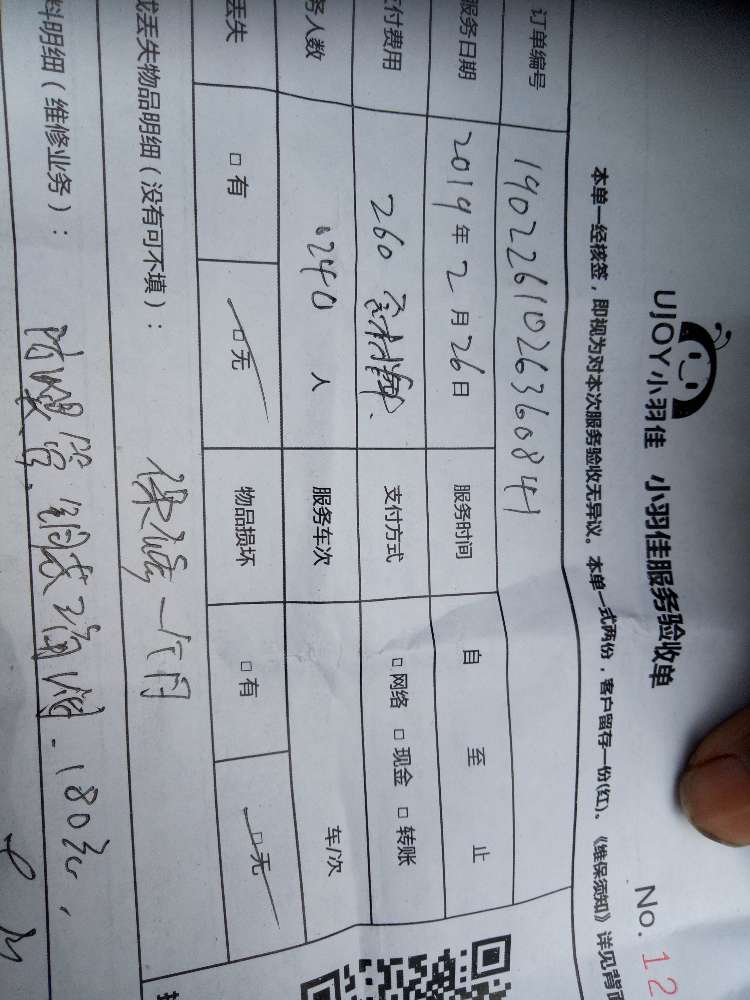 UJOY小羽佳 小羽佳服务验收单
No. 12
本单一经核签，即视为对本次服务验收无异议。本单一式两份，客户留存一份(红)、《维保须知》详见背面
订单编号 1902261026360841
服务日期 2019年2月26日 服务时间 自 至 止
支付费用 260 含材料 支付方式 □网络 □现金 □转账
务人数 240 人 服务车次 车次
丢失 □有 □无 物品损坏 □有 □无
或丢失物品明细（没有可不填）： 保修一个月
料明细（维修业务）： 180元，